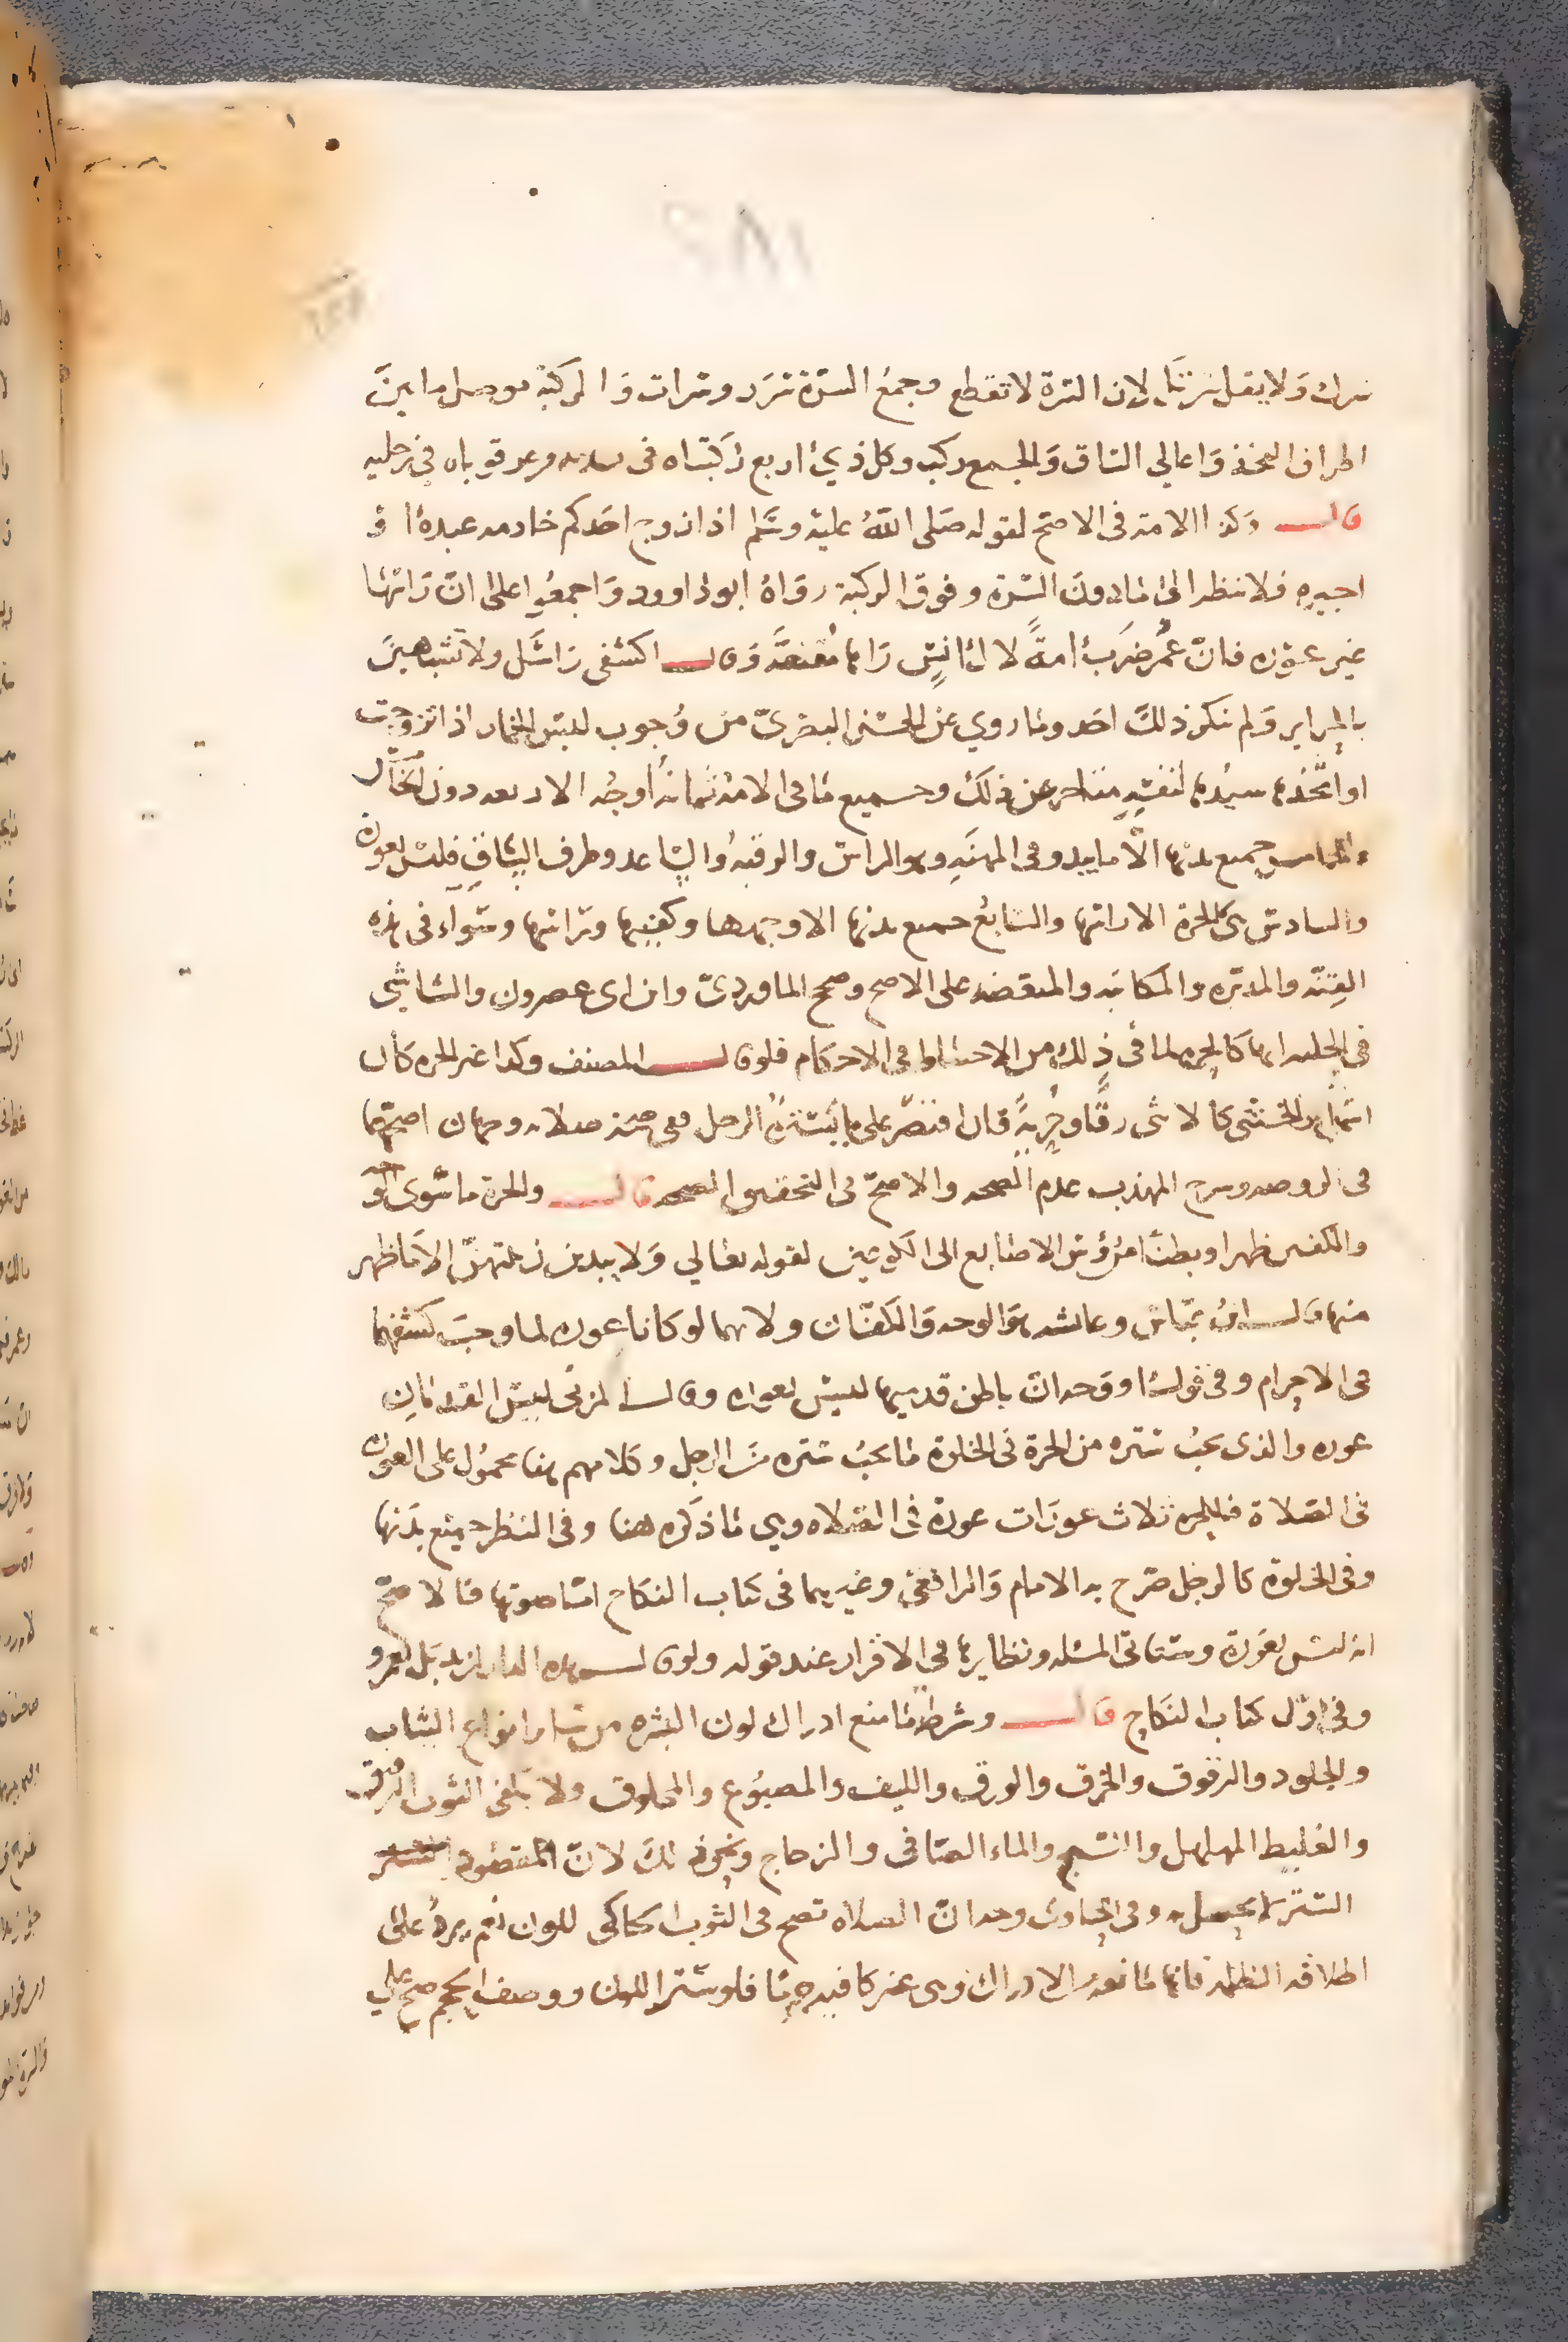 سرك ولا يقل سرتك لان السرة لا تقطع وجمع السرة سرر وسرات والركبة موصل ما بين
اطراف الفخذ واعالي الساق والجمع ركب وكل ذي اربع ركبتاه فى يديه وعرقوباه فى رجليه
قال وكذا الامة فى الاصح لقوله صلى الله عليه وسلم اذا زوج احدكم خادمه عبده او
اجيره فلا ينظر الى ما دون السرة وفوق الركبة رواه ابو داوود واجمعوا على ان راسها
غير عورة فان عمر ضرب امة لال انس راها مقنعة وقال اكشفى راسك ولا تشبهين
بالحراير ولم ينكر ذلك احد وما روي عن الحسن البصري من وجوب لبس الخمار اذا تزوجت
او اتخذها سيدها لنفسه متاخر عن ذلك وجميع ما فى الامة ثمانية اوجه الاربعة دون الخامس
والخامس جميع بدنها الا ما يبدو فى المهنة وهو الراس والرقبة والساعد وطرف الساق فليس بعورة
والسادس كالحرة الا راسها والسابع جميع بدنها الا وجهها وكفيها وراسها وسواء فى هذه
القنة والمدبرة والمكاتبة والمبعضة على الاصح وصحح الماوردي وابن ابى عصرون والشاشي
فى الحلية انها كالحرة لما فى ذلك من الاحتياط فى الاحكام فلو قال المصنف وكذا غير الحرة كان
اشمل والخنثى كالانثى رقا وحرية فان اقتصر على ما يستره الرجل ففى صحة صلاته وجهان اصحهما
فى الروضة وشرح المهذب عدم الصحة والاصح فى التحقيق الصحة قال والحرة ما سوى الوجه
والكفين ظهرا وبطنا من رؤس الاصابع الى الكوعين لقوله تعالى ولا يبدين زينتهن الا ما ظهر
منها قال ابن عباس وعائشة هو الوجه والكفان ولانهما لو كانا عورة لما وجب كشفهما
فى الاحرام وفى قول او وجه ان باطن قدميها ليس بعورة وقال المزنى ليس القدمان
عورة والذى يجب ستره من الحرة فى الخلوة ما يجب ستره من الرجل وكلامهم هنا محمول على العورة
فى الصلاة فللحرة ثلاث عورات عورة فى الصلاة وهى ما ذكره هنا وفى النظر جميع بدنها
وفى الخلوة كالرجل صرح به الامام والرافعى وغيرهما فى كتاب النكاح اما صوتها فالاصح
انه ليس بعورة وستاتى المسلة ونظايرها فى الاقرار عند قوله ولو قال هذه الدار لزيد بل لعمرو
وفى اول كتاب النكاح قال وشرطه ما منع ادراك لون البشرة من ساير انواع الثياب
والجلود والرقوق والخرق والورق والليف والمصبوغ والمحلوق ولا يكفى الثوب الرقيق
والغليظ المهلهل النسج والماء الصافى والزجاج ونحو ذلك لان المقصود
الستر لا يحصل به وفى الحاوى وجه ان الصلاة تصح فى الثوب الحاكى للون نعم يرد على
اطلاقه الظلمة فانها مانعة من الادراك وهى غير كافية جزما فلو ستر اللون ووصف الحجم صح على